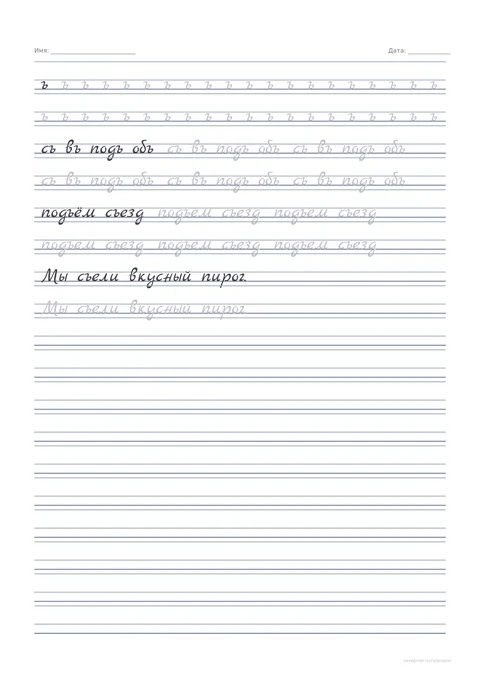 Имя: Дата:
ъ ъ ъ ъ ъ ъ ъ ъ ъ ъ ъ ъ ъ ъ ъ ъ ъ ъ ъ ъ
ъ ъ ъ ъ ъ ъ ъ ъ ъ ъ ъ ъ ъ ъ ъ ъ ъ ъ ъ ъ
съ въ подъ объ съ въ подъ объ съ въ подъ объ
съ въ подъ объ съ въ подъ объ съ въ подъ объ
подъём съезд подъем съезд подъем съезд
подъем съезд подъем съезд подъем съезд
Мы съели вкусный пирог.
Мы съели вкусный пирог